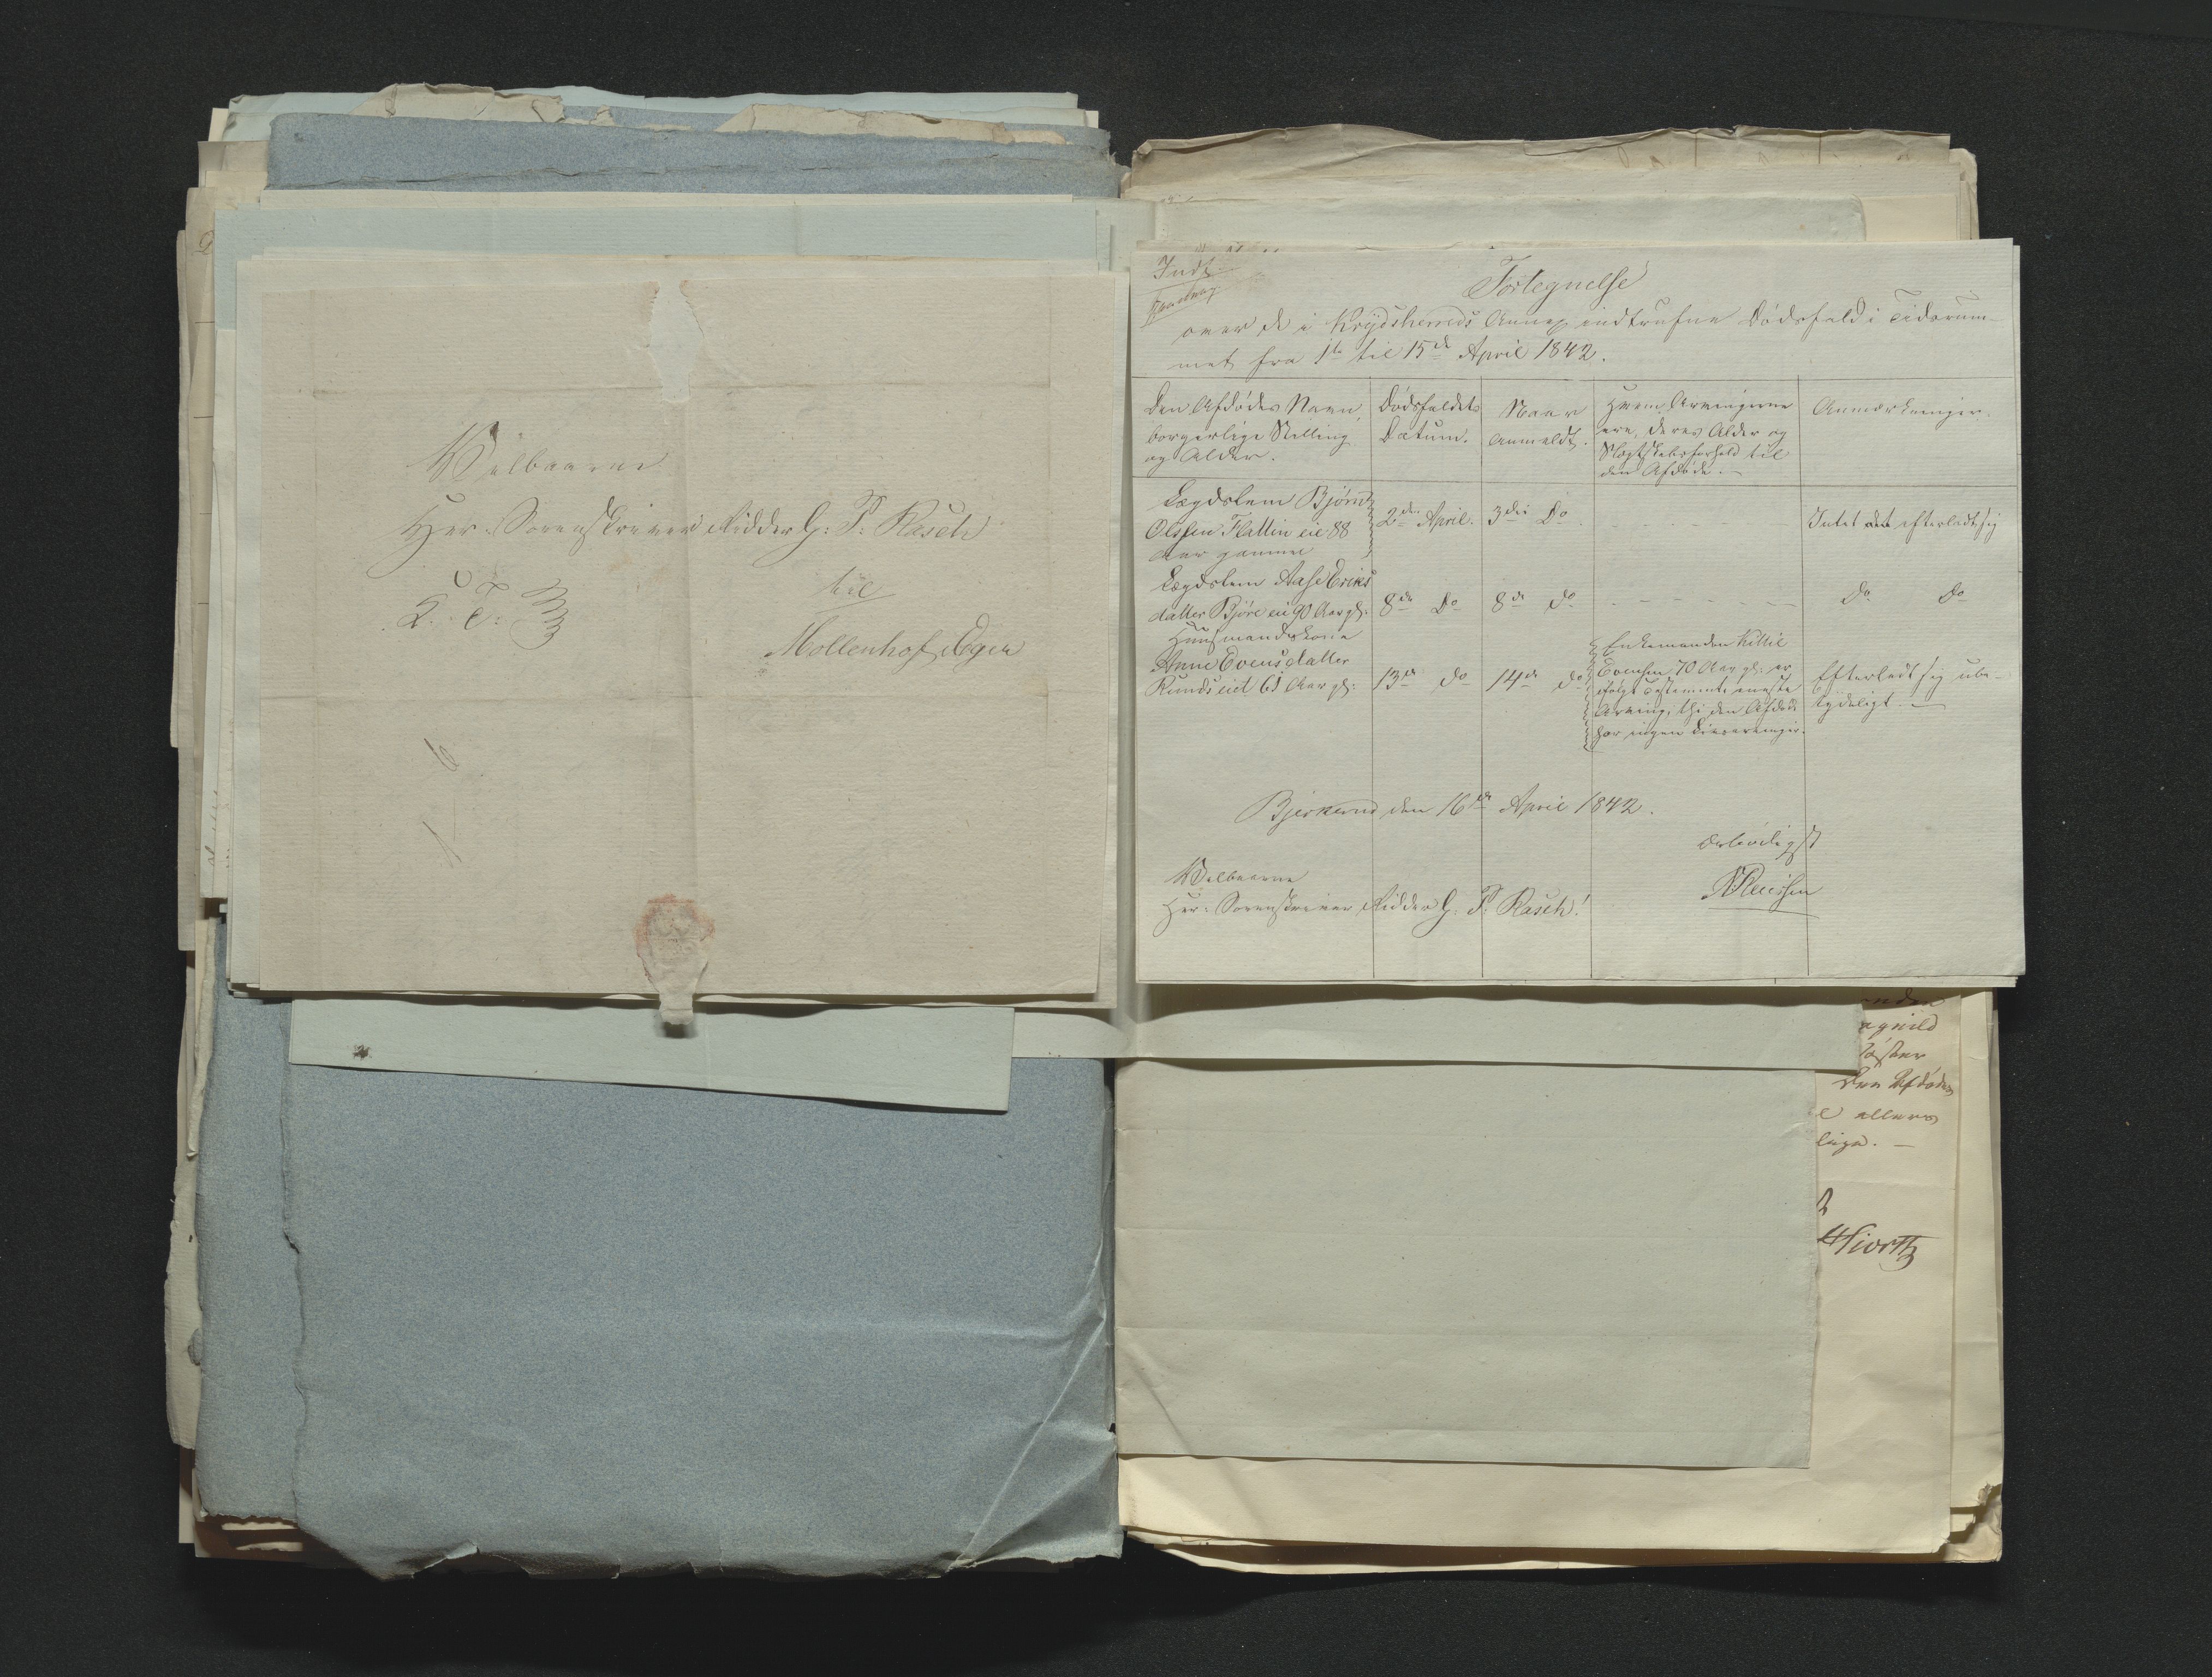 Velbaarne
Herr Sorenskriver Ridder G: P: Rasch
S: T:
til
Mollenhof Eger
1-6
Indf.
Fortegnelse
over de i Krydsherreds Annex indtrufne Dødsfald i Tidsrum-
met fra 1te til 15de April 1842.
Den Afdødes Navn,
borgerlige Stilling
og Alder.
Dødsfaldets
Datum.
Naar
anmeldt.
Hvem Arvingerne
ere, deres Alder og
Slægtskabsforhold til
den Afdøde. -
Anmærkninger.
Lægdslem Bjørn
Olssen Flattin eie 88
Aar gammel
2den April.
3die Do
Intet efterladt sig
Lægdslem Aase Eriks
datter Bjøre eie 90 Aar gl:
8de Do
8de do
do do
Huusmandskone
Anne Evensdatter
Rundseiet 61 Aar gl:
13de do
14de do
Enkemanden Kittil
Evensen 70 Aar gl: er
ifølge Testamente eneste
Arving, thi den Afdøde
har ingen Livsarvinger.
Efterladt sig ube-
tydeligt. -
Bjerkerud den 16de April 1842.
Ærbødigst
Velbaarne
Herr Sorenskriver Ridder G: P: Rasch!
den Afdødes
allers
Hiorth